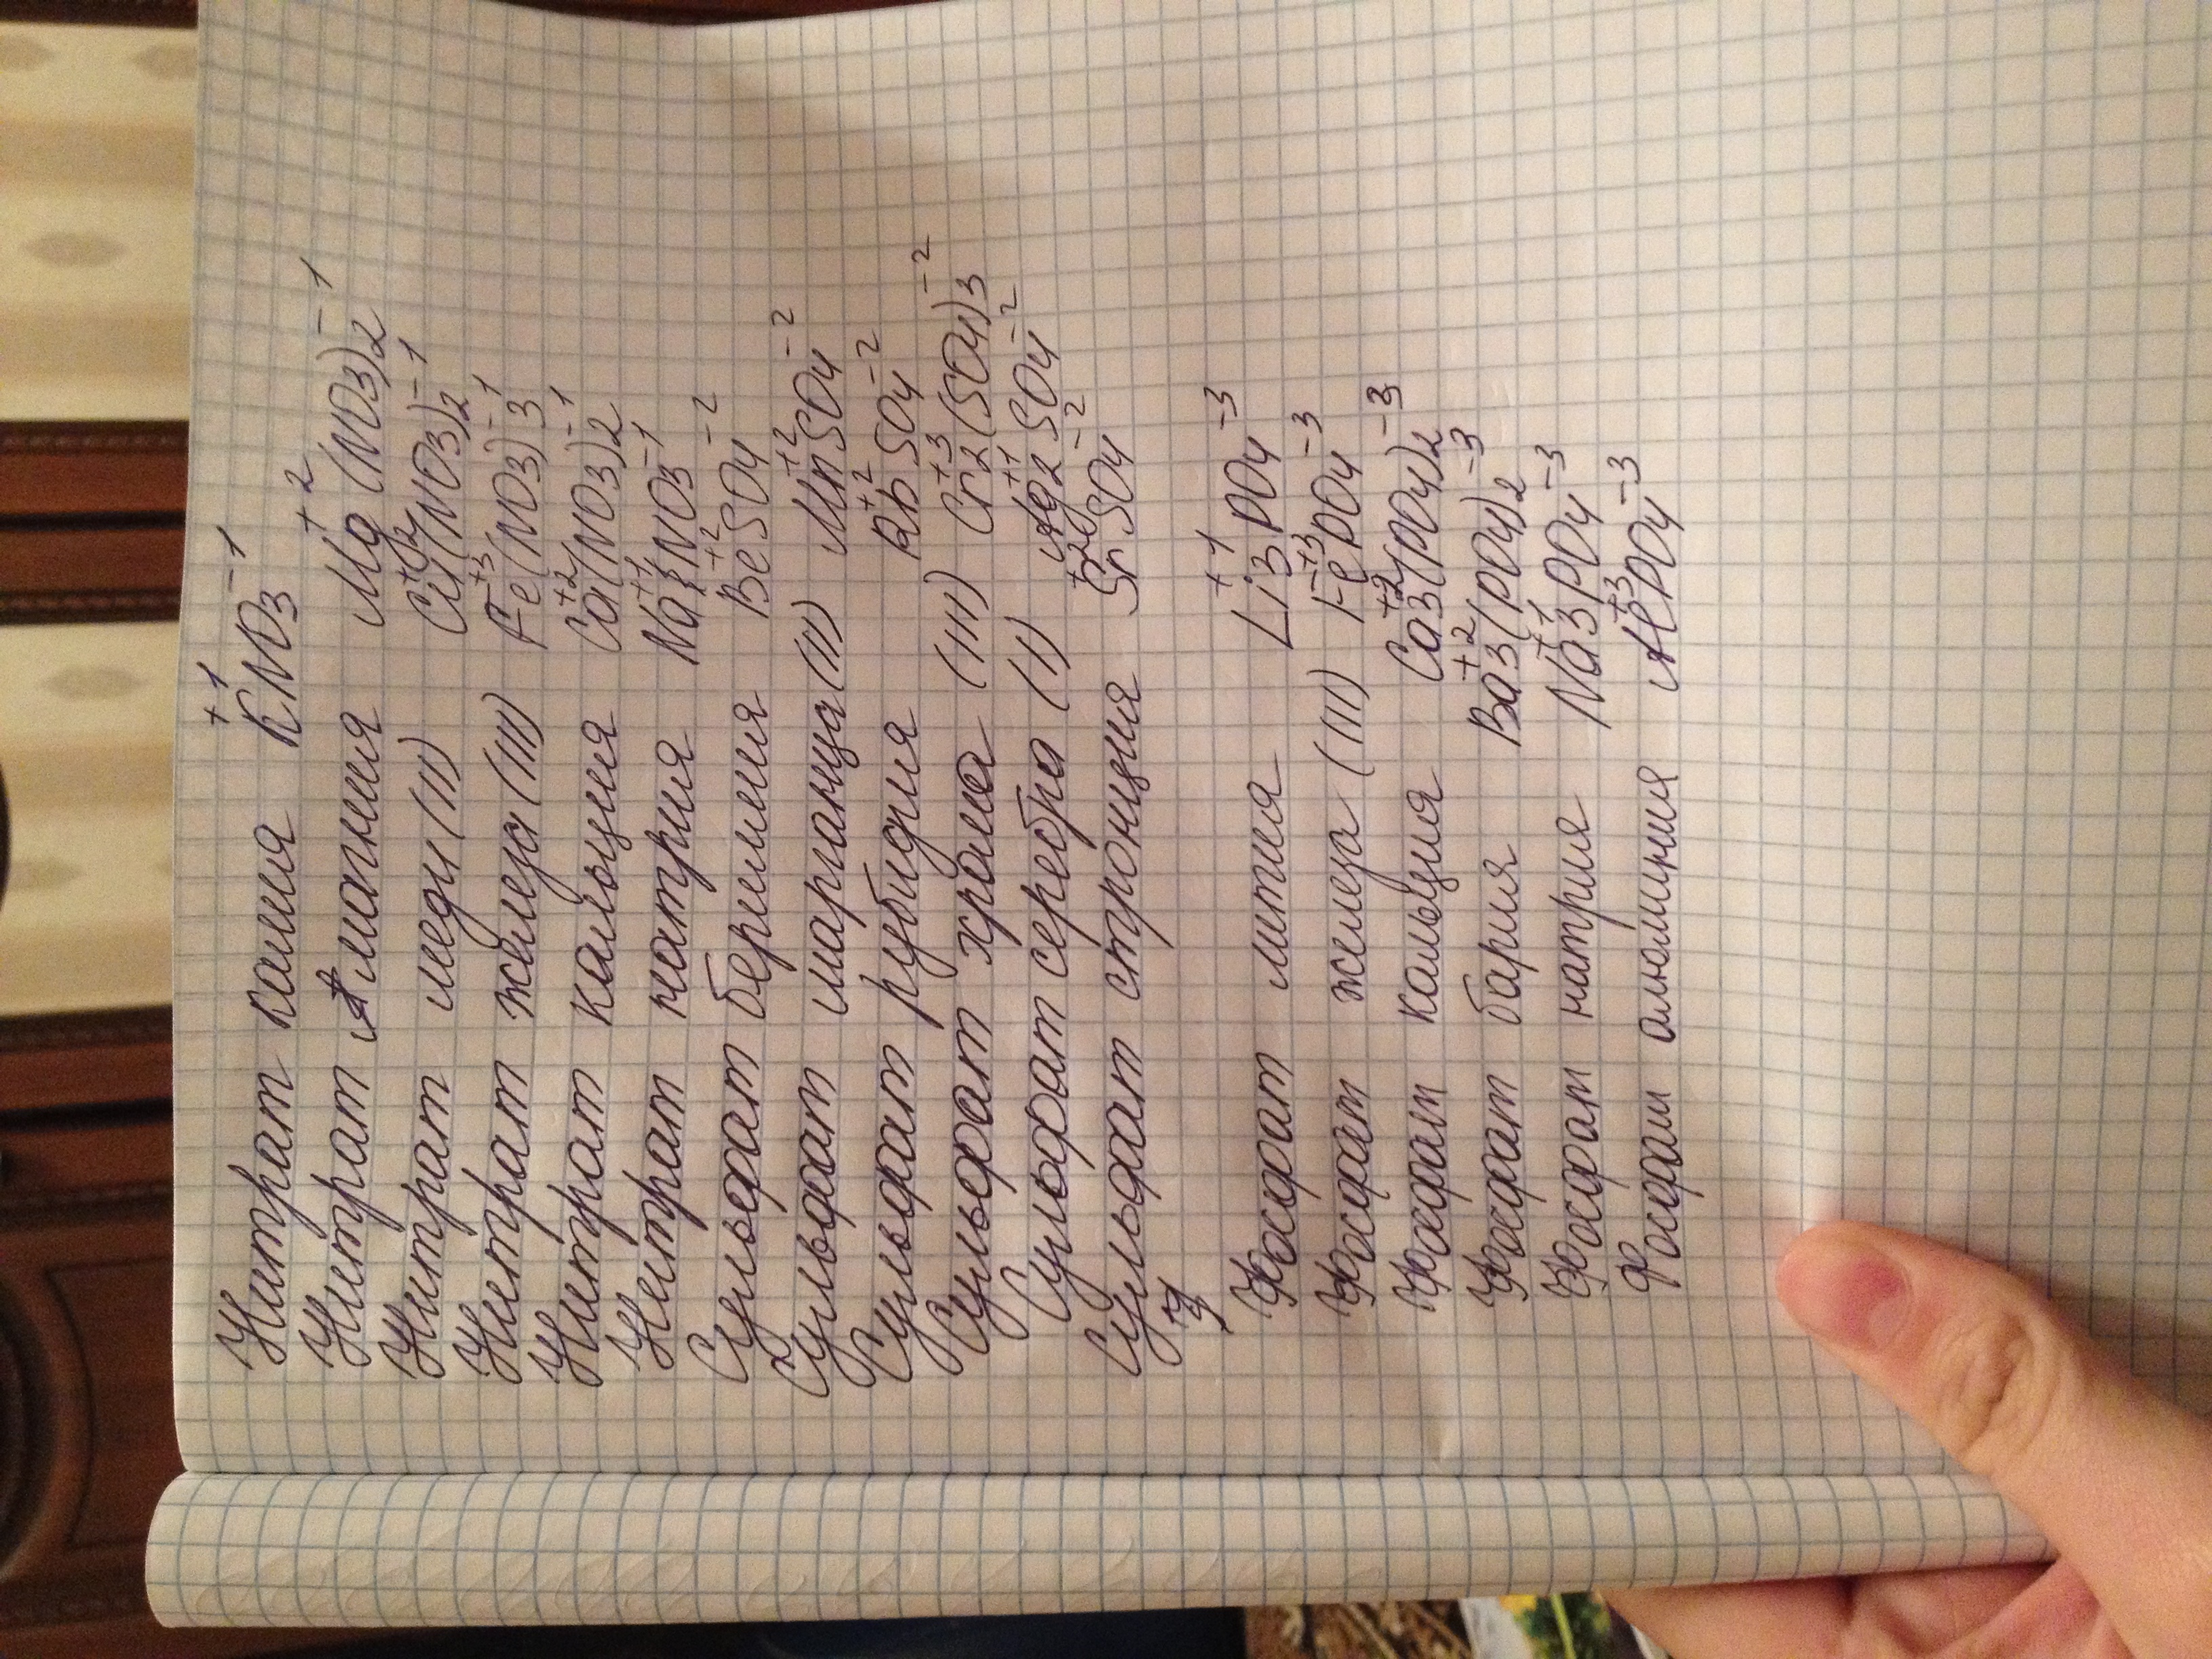 Нитрат калия K⁺¹NO3⁻¹
Нитрат магния Mg⁺²(NO3)2⁻¹
Нитрат меди (II) Cu⁺²(NO3)2⁻¹
Нитрат железа (III) Fe⁺³(NO3)3⁻¹
Нитрат кальция Ca⁺²(NO3)2⁻¹
Нитрат натрия Na⁺¹NO3⁻¹
Сульфат бериллия Be⁺²SO4⁻²
Сульфат марганца (II) Mn⁺²SO4⁻²
Сульфат рубидия Rb⁺²SO4⁻²
Сульфат хрома (III) Cr2⁺³(SO4)3⁻²
Сульфат серебра (I) Ag2⁺¹SO4⁻²
Сульфат стронция Sr⁺²SO4⁻²
Фосфат лития Li3⁺¹PO4⁻³
Фосфат железа (III) Fe⁺³PO4⁻³
Фосфат кальция Ca3⁺²(PO4)2⁻³
Фосфат бария Ba3⁺²(PO4)2⁻³
Фосфат натрия Na3⁺¹PO4⁻³
Фосфат алюминия Al⁺³PO4⁻³